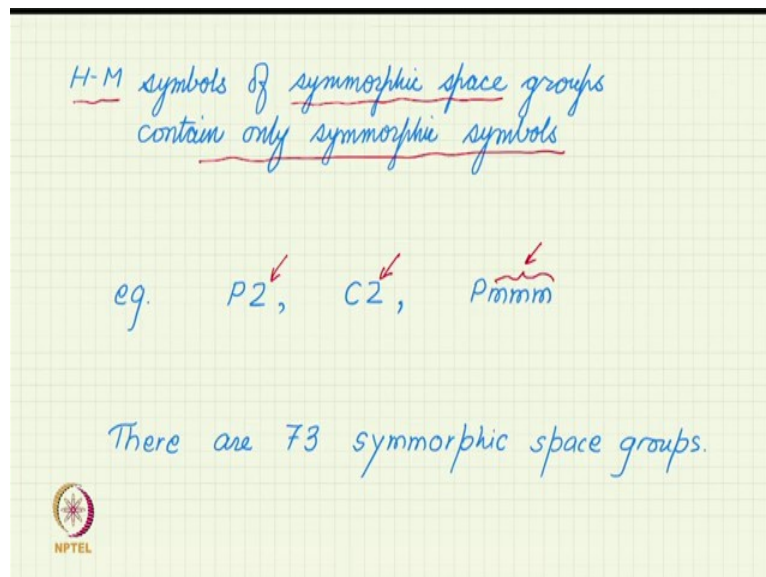 H-M symbols of symmorphic space groups
contain only symmorphic symbols
eg. P2, C2, Pmmm
There are 73 symmorphic space groups.
NPTEL